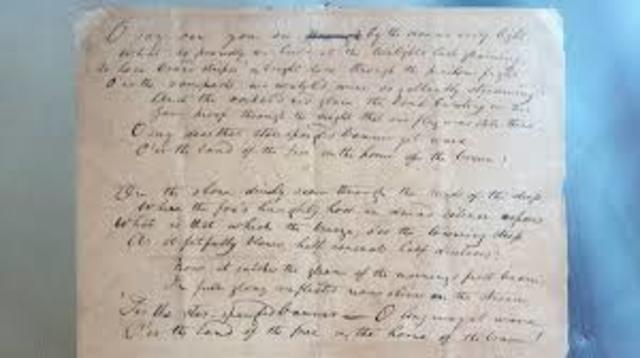 O say can you see by the dawn's early light
What so proudly we hail'd at the twilight's last gleaming,
Whose broad stripes & bright stars through the perilous fight
O'er the ramparts we watch'd, were so gallantly streaming?
And the rocket's red glare, the bomb bursting in air,
Gave proof through the night that our flag was still there,
O say does that star-spangled banner yet wave
O'er the land of the free & the home of the brave?
On the shore dimly seen through the mists of the deep,
Where the foe's haughty host in dread silence reposes,
What is that which the breeze, o'er the towering steep,
As it fitfully blows, half conceals, half discloses?
Now it catches the gleam of the morning's first beam,
In full glory reflected now shines in the stream,
'Tis the star-spangled banner — O long may it wave
O'er the land of the free & the home of the brave!